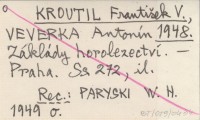 KROUTIL František V.,
VEVERKA Antonín 1948.
Základy horolezectví. —
Praha. Ss 272, il.
Rec.: PARYSKI W. H.
1949 o.